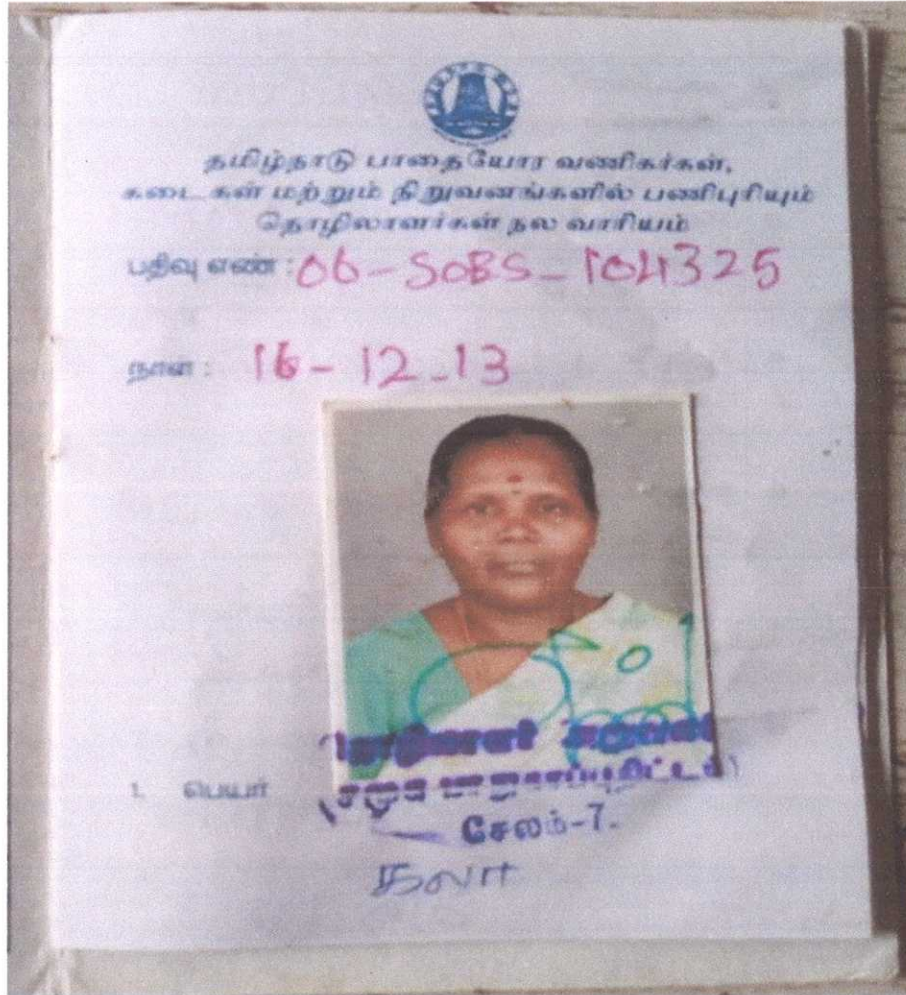 தமிழ்நாடு பாதையோர வணிகர்கள்,
கடைகள் மற்றும் நிறுவனங்களில் பணிபுரியும்
தொழிலாளர்கள் நல வாரியம்
பதிவு எண் : 06-SOBS-104325
நாள் : 16-12-13
1. பெயர்
சேலம்-7.
கலா